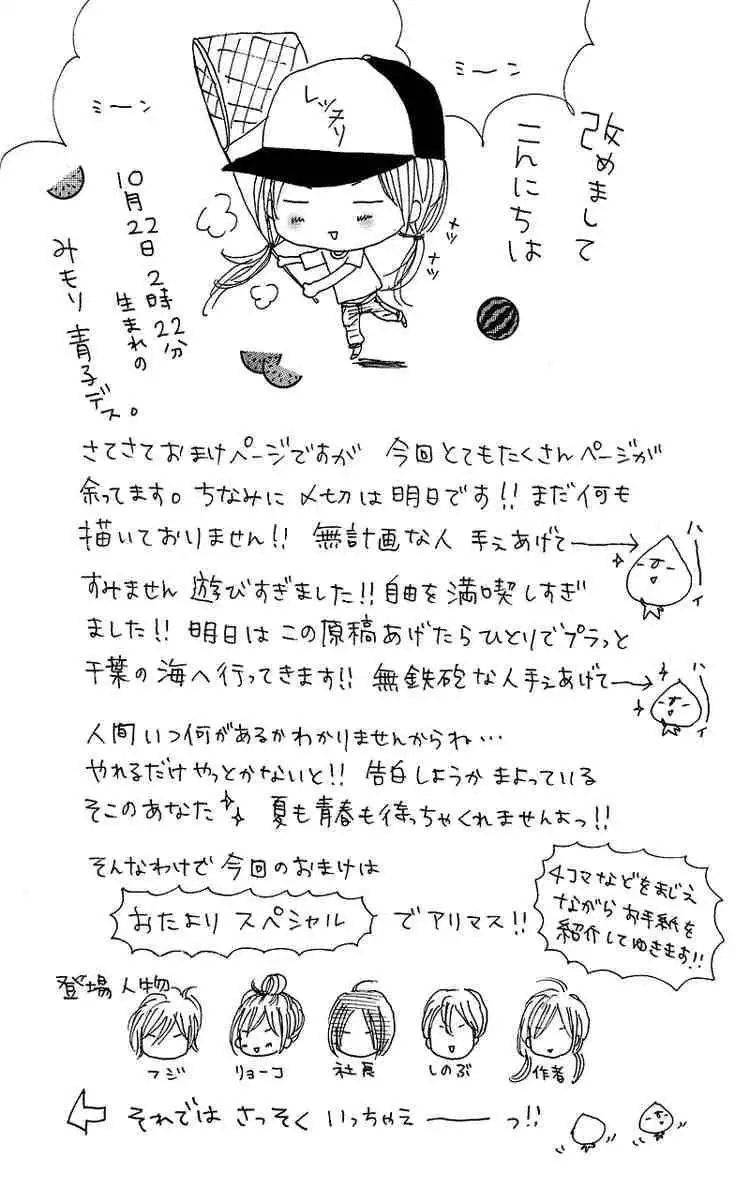 改めまして
こんにちは
ミーン
ミーン
レッスリ
メッ
メッ
10月22日2時22分
生まれの
みもり青子デス。
さてさておまけページですが 今回とてもたくさんページが
余ってます。ちなみに〆切は明日です!!まだ何も
描いておりません!! 無計画な人 手えあげて
ハーイ
すみません 遊びすぎました!!自由を満喫しすぎ
ました!! 明日はこの原稿あげたらひとりでプラっと
千葉の海へ行ってきます!! 無鉄砲な人手えあげて
ハーイ
人間いつ何があるかわかりませんからね…
やれるだけやっとかないと!! 告白しようかまよっている
そこのあなた 夏も青春も待っちゃくれませんよっ!!
そんなわけで今回のおまけは
おたより スペシャル でアリマス!!
4コマなどをまじえ
ながらお手紙を
紹介してゆきます!!
登場人物
フジ
リョーコ
社長
しのぶ
作者
それでは さっそく いっちゃえーっ!!